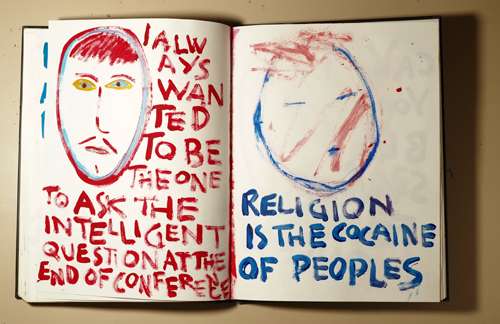 I ALW
AYS
WAN
TED
TO BE
THE ONE
TO ASK THE
INTELLIGENT
QUESTION AT THE
END OF CONFERECE
RELIGION
IS THE COCAINE
OF PEOPLES